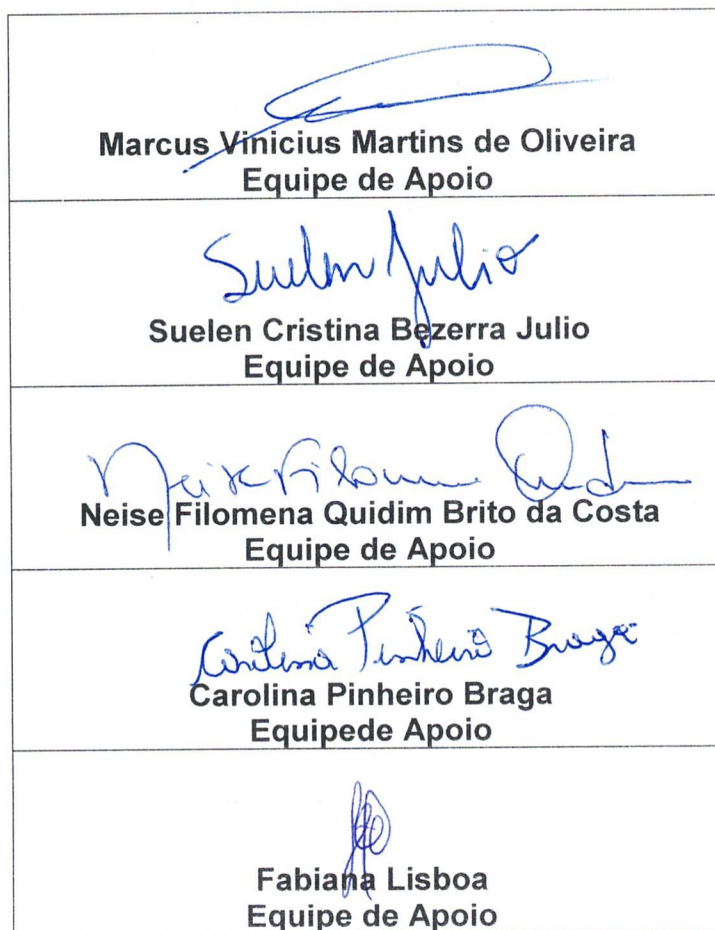 Marcus Vinicius Martins de Oliveira
Equipe de Apoio
Suelen Julio
Suelen Cristina Bezerra Julio
Equipe de Apoio
Neise Filomena Quidim
Neise Filomena Quidim Brito da Costa
Equipe de Apoio
Carolina Pinheiro Braga
Carolina Pinheiro Braga
Equipede Apoio
Fabiana Lisboa
Equipe de Apoio